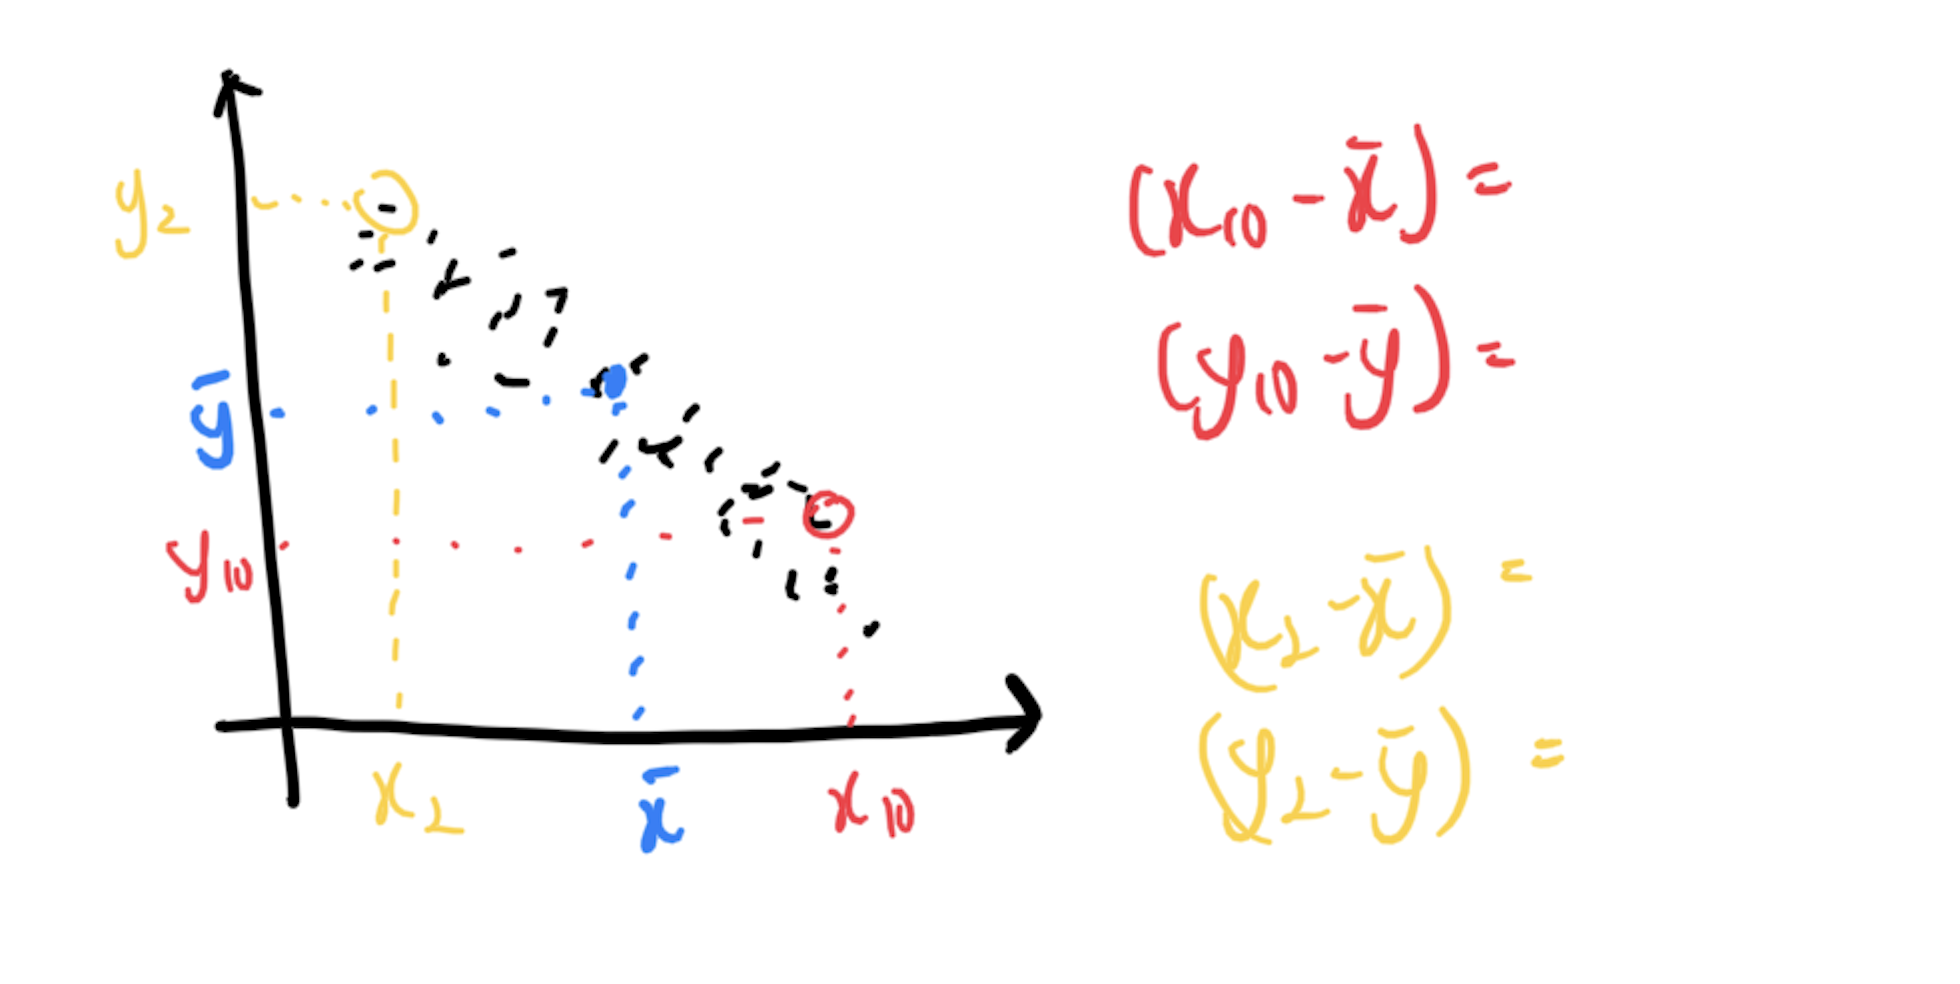 y₂
ȳ
y₁₀
x₂
x̄
x₁₀
(x₁₀ - x̄) =
(y₁₀ - ȳ) =
(x₂ - x̄) =
(y₂ - ȳ) =